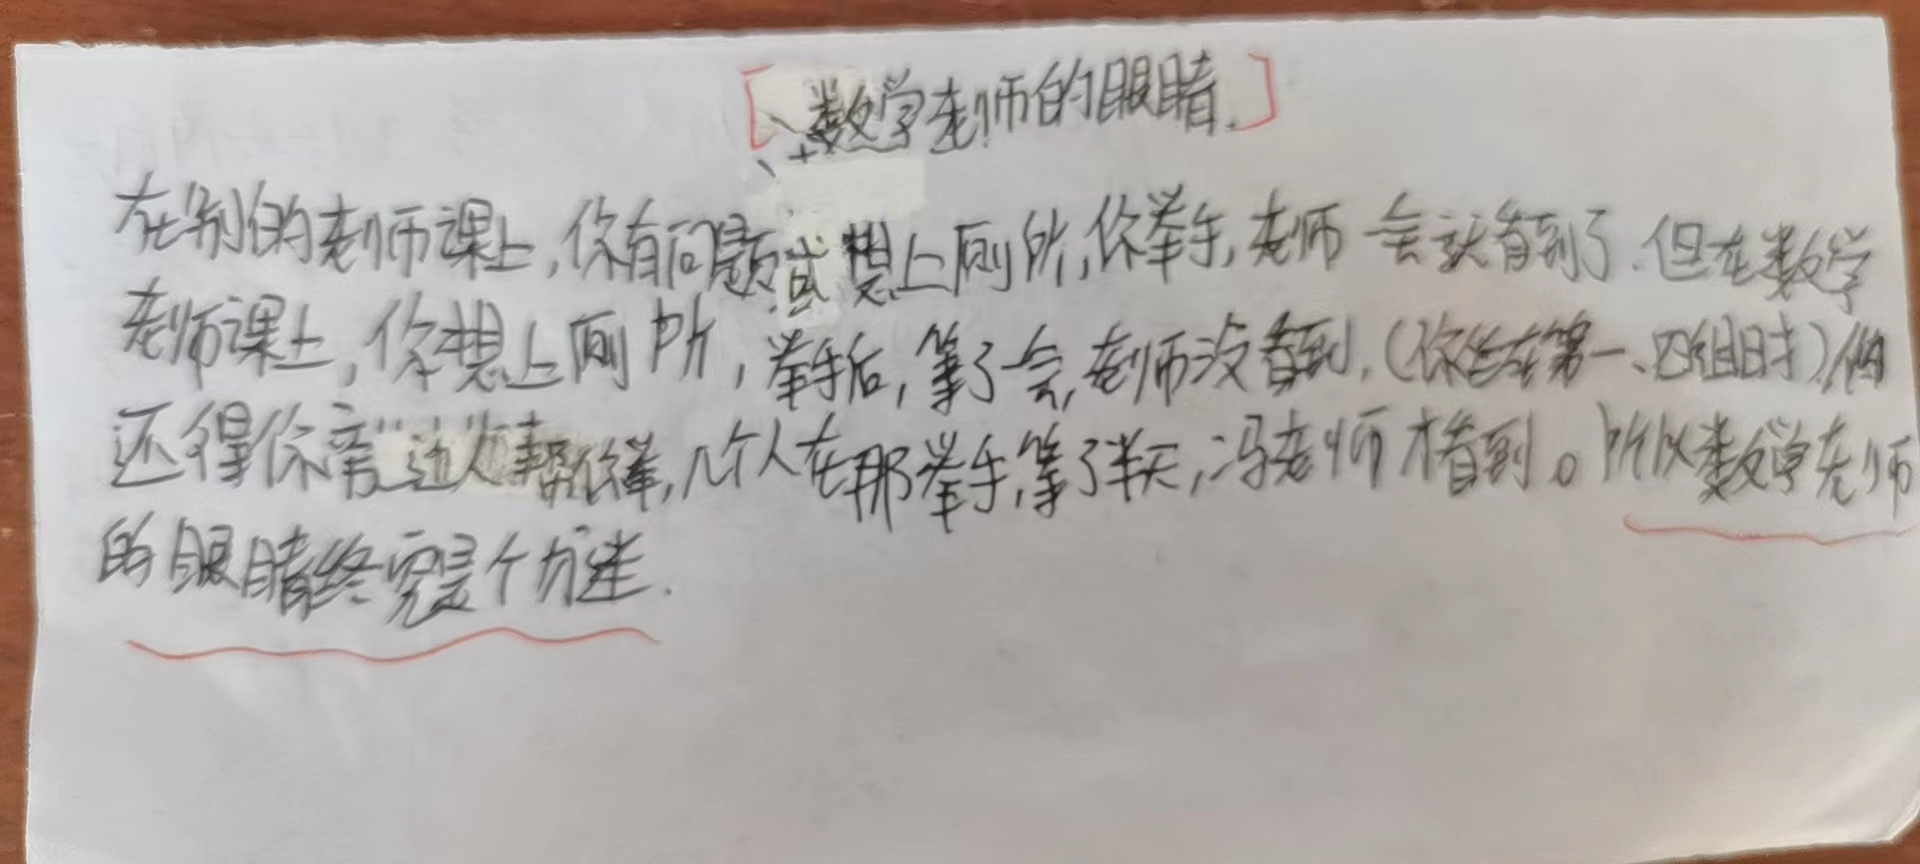 数学老师的眼睛.
在别的老师课上,你有问题或想上厕所,你举手,老师一会就看到了.但在数学
老师课上,你想上厕所,举手后,等了一会,老师没看到,(你坐在第一、四组时)
还得你旁边人帮你举,几个人在那举手,等了半天,冯老师才看到。所以数学老师
的眼睛终究是个方迷.